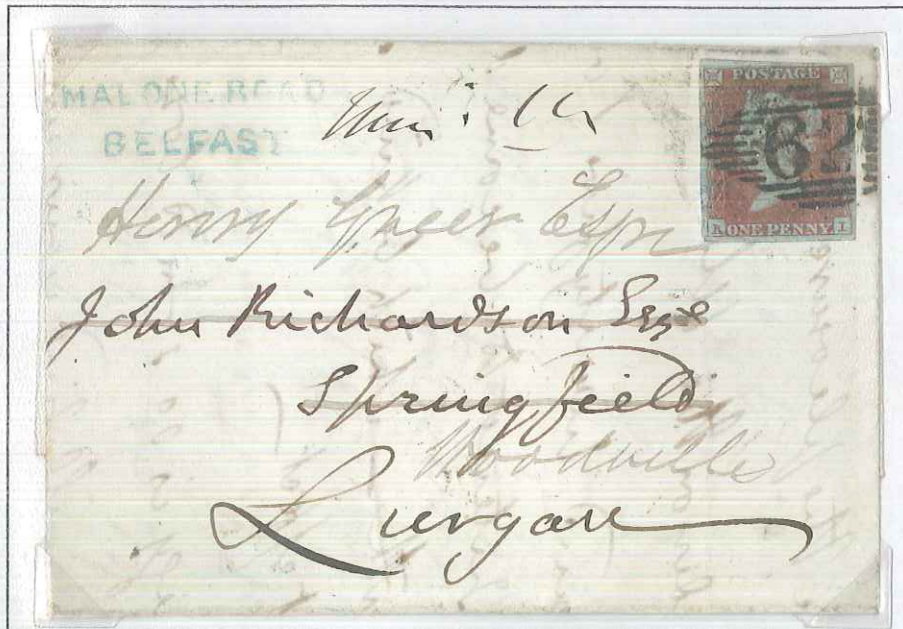 MALONE ROAD
BELFAST
POSTAGE
62
K ONE PENNY I
Henry Greer Esqre
John Richardson Esqe
Springfield
Woodville
Lurgan